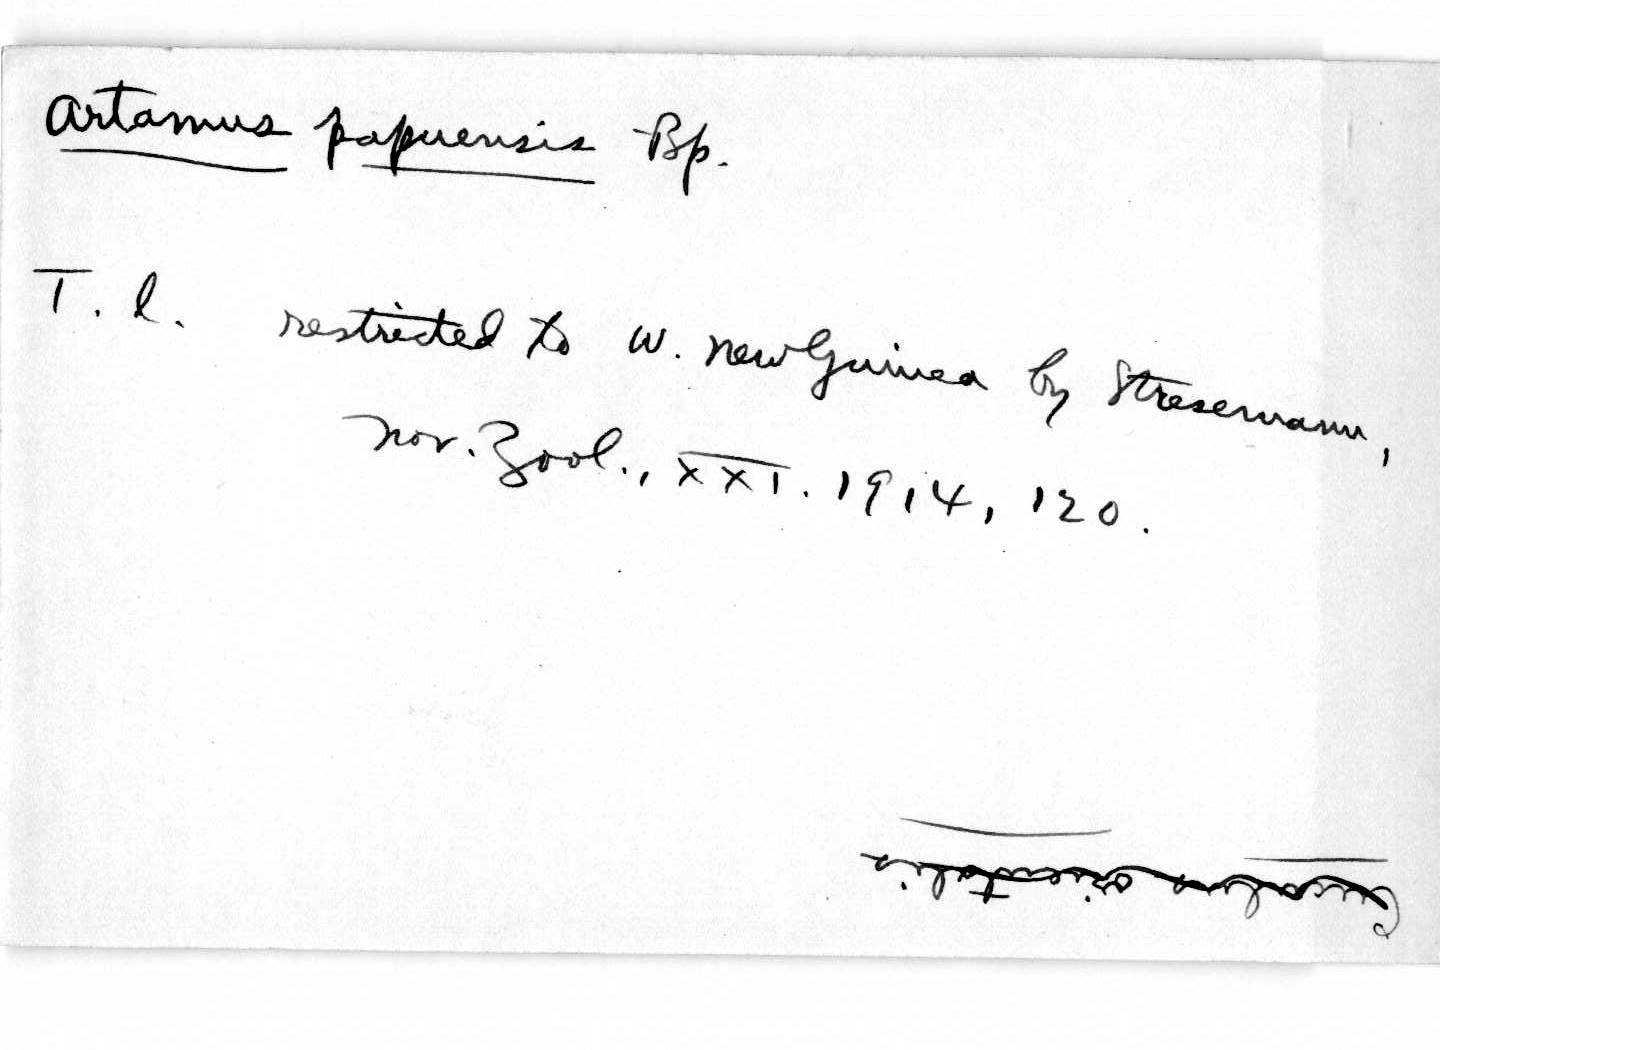 Artamus papuensis Bp.
T. l. restricted to W. New Guinea by Stresemann,
Nov. Zool., XXI. 1914, 120.
Cuculus orientalis